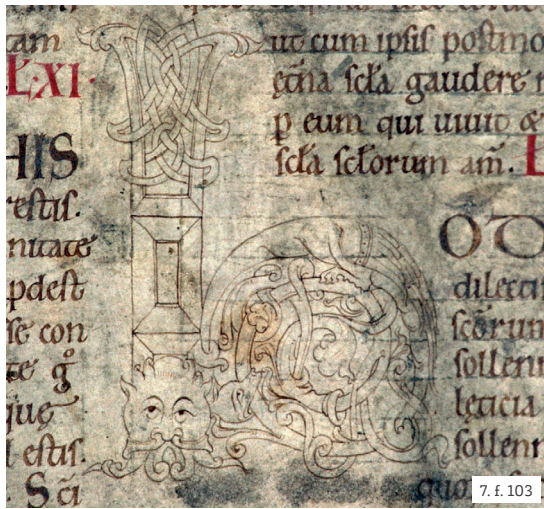 tam
Ł·XI·
HIS
restis.
nitate
pdest
se con
te g°
ique
estis.
Sc̄i
ut cum ipsis postmo
ęt̄na scl̄a gaudere
p̱ eum qui uiuit &
scl̄a scl̄orum am̄. L
h
OD
dilecti
sc̄orum
sollem
lęticia
sollenn
quo
7. f. 103